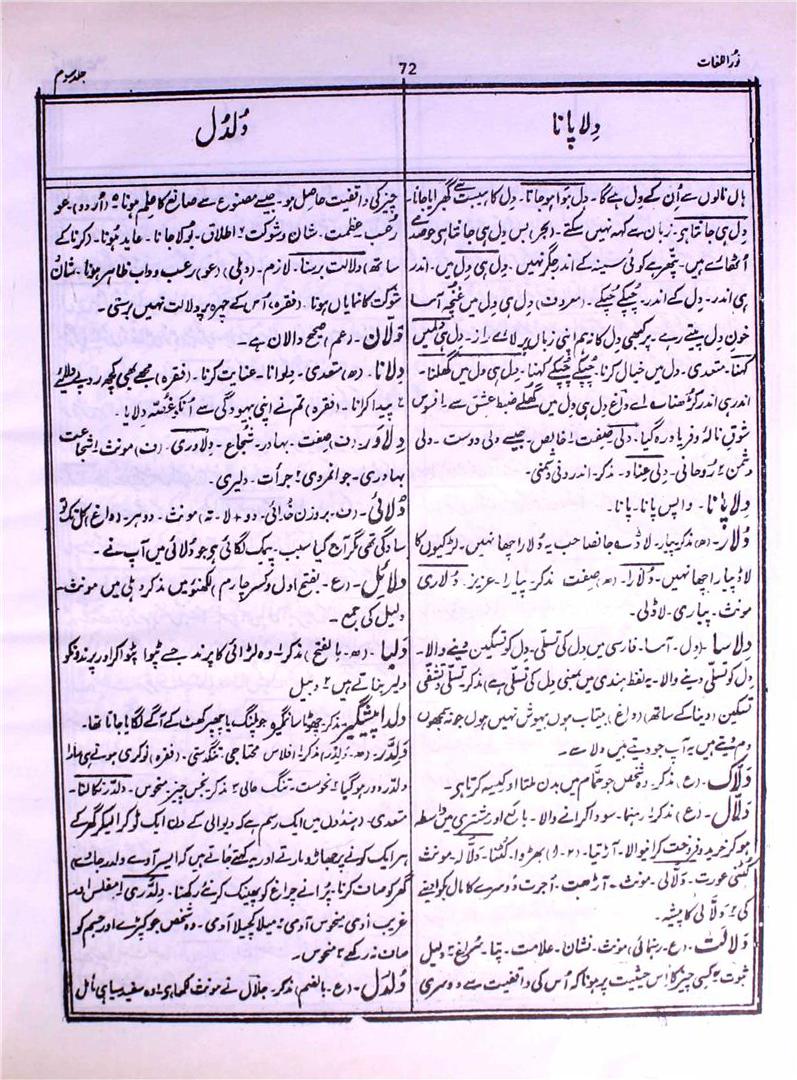 نورُاللغات
72
جلد سوم
دِلا پانا
دُلدُل
ہاں نالوں سے اُن کے دِل ہے گا۔ دِل ہَوا ہوجاتا۔ دِل کا ہیبت سے گھبرایا جانا
دِل ہی جانتا ہو۔ زبان سے کہہ نہیں سکتے۔ (بحر) بس دِل ہی جانتا ہی جو صدمے
اُٹھائے ہیں۔ پتھر ہے کوئی سینہ کے اندر جگر نہیں۔ دِل ہی دِل میں۔ اندر
ہی اندر۔ دِل کے اندر۔ چپکے چپکے۔ (معروف) دِل ہی دِل میں غنچہ آسا
خون دِل پیتے رہے۔ پر کبھی دِل کا نہ ہم اپنی زباں پر لائے راز۔ دِل ہی دِل میں
کہنا۔ متعدی۔ دِل میں خیال کرنا۔ چپکے چپکے کہنا۔ دِل ہی دِل میں گھلنا۔
اندر ہی اندر کڑھنا اے داغ دِل ہی دِل میں گھلے ضبط عشق سے۔ افسوس
شوق نالہ و فریاد رہ گیا۔ دِلی۔ صفت۔ ۱ خالص۔ جیسے دلی دوست۔ دلی
دشمن ۲ رُوحانی۔ دِلی عناد۔ مذکر۔ اندرونی دشمنی۔
دِلا پانا۔ واپس پانا۔ پانا۔
دُلار۔ (ھ) مذکر۔ پیار۔ لاڈ۔ جانصاحب یہ دُلار اچھا نہیں۔ لڑکیوں کا
لاڈ پیار اچھا نہیں۔ دُلارا۔ (ھ) صفت مذکر۔ پیارا۔ عزیز۔ دُلاری
مونث۔ پیاری۔ لاڈلی۔
دِلاسا۔ (دِل۔ آسا۔ فارسی میں دِل کی تسلی۔ دِل کو تسکین دینے والا۔
دِل کو تسلی دینے والا۔ یہ لفظ ہندی میں بمعنی دِل کی تسلی ہے) مذکر۔ تسلی۔ تشفی
تسکین (دینا کے ساتھ) (داغ) بیتاب ہوں بیہوش نہیں ہوں جو نہ سمجھوں
دم دیتے ہیں یہ آپ جو دیتے ہیں دلاسے۔
دَلّاک۔ (ع) مذکر۔ وہ شخص جو حمّام میں بدن ملتا اور کیسہ کرتا ہی۔
دَلّال۔ (ع) مذکر ۱ رہنما۔ سودا کرانے والا۔ بائع اور مشتری میں واسطہ
ہو کر خرید و فروخت کرانیوالا۔ آڑتیا۔ ۲ (ھ) بھڑوا۔ کٹنا۔ دَلّالہ۔ مونث
کُٹنی عورت۔ دَلّالی۔ مونث۔ آڑھت۔ اُجرت دوسرے کا مال بکوا دینے
کی ۲ دَلّالی کا پیشہ۔
دَلالت۔ (ع۔ رہنمائی) مونث۔ نشان۔ علامت۔ پتا۔ سُراغ ۲ دلیل
ثبوت ۳ کسی چیز کا اس حیثیت پر ہونا کہ اُس کی واقفیت سے دوسری
چیز کی واقفیت حاصل ہو۔ جیسے مصنوع سے صانع کا علم ہونا ۴ (اُردو) عو
رُعب۔ عظمت۔ شان و شوکت ۵ اطلاق۔ بولا جانا۔ عاید ہونا۔ (کرنا کے
ساتھ) دلالت برسنا۔ لازم۔ (دہلی) (عو) رعب و داب ظاہر ہونا۔ شان
شوکت کا نمایاں ہونا۔ (فقرہ) اُس کے چہرہ پر دلالت نہیں برستی۔
دَلّان۔ (عم) صحیح دالان ہے۔
دِلانا۔ (ھ) متعدی۔ دلوانا۔ عنایت کرنا۔ (فقرہ) مجھے بھی کچھ روپے دلائیے
۲ پیدا کرنا۔ (فقرہ) تم نے اپنی بیہودگی سے اُنکو غصہ دلایا۔
دِلاور۔ (ف) صفت۔ بہادر۔ شُجاع۔ دِلاوری۔ (ف) مونث ۱ شجاعت
بہادری۔ جوانمردی ۲ جرأت۔ دلیری۔
دُلائی۔ (ف۔ بروزن خدائی۔ دو + لا۔ تہ) مونث۔ دوہر (داغ) کل تک تو
سادگی تھی مگر آن گیا سبب۔ پیمک لگائی ہی جو دلائی میں آپ نے۔
دَلائل۔ (ع۔ بفتح اول و کسر چارم) لکھنؤ میں مذکر دہلی میں مونث۔
دلیل کی جمع۔
دلبا۔ (ھ۔ بالفتح) مذکر ۱ وہ لڑائی کا پرند جسے پٹوا پٹوا کر اور پرندونکو
دلیر بناتے ہیں ۲ ذلیل
دلدا پیشگیر۔ مذکر۔ چھوٹا سا نگیرہ جو پلنگ یا چھپر کھٹ کے آگے لگایا جاتا تھا۔
دَلِدّر۔ (ھ۔ دَلِدّر) مذکر ۱ افلاس۔ محتاجی۔ تنگدستی۔ (فقرہ) نوکری ہوتے ہی ہمارا
دلدر دور ہو گیا ۲ نحوست۔ تنگ حالی ۳ مذکر۔ نجس چیز۔ منحوس۔ دلدر نکالنا۔
متعدی۔ (ہندؤں میں ایک رسم ہے کہ دیوالی کے دن ایک ٹوکرا لیکر گھر کے
ہر ایک کونے پر جھاڑو مارتے اور یہ کہتے جاتے ہیں کہ ایسر آوے دلدر جائے)
گھر کو صاف کرنا۔ پرانے چراغ کو پھینک کر نئے رکھنا۔ دِلدّری ۱ مفلس اور
غریب آدمی۔ منحوس آدمی ۲ میلا کچیلا آدمی۔ وہ شخص جو کپڑے اور جسم کو
صاف نہ رکھے ۳ منحوس۔
دُلدُل۔ (ع۔ بالضم) مذکر۔ جلال نے مونث لکھا ہی ۱ وہ سفید سیاہی مائل